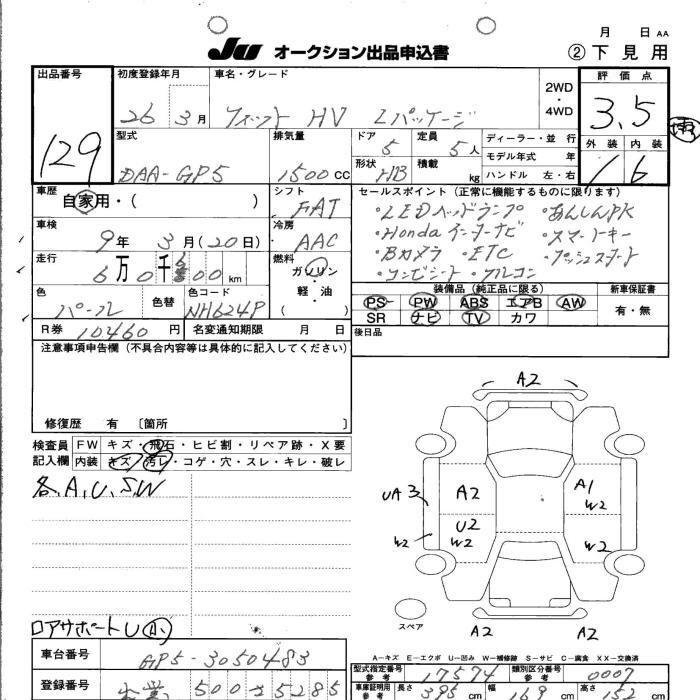 月 日 AA
JU オークション出品申込書 ②下見用
出品番号 129
初度登録年月 26 3月
車名・グレード フィット HV Lパッケージ
2WD・4WD
評価点 3.5
外装 内装
1 6
型式 DAA-GP5
排気量 1500 CC
ドア 5
定員 5人
形状 HB
積載 kg
ディーラー・並行
モデル年式 年
ハンドル 左・右
車歴 自家用・( )
シフト FAT
車検 9年 3月(20日)
冷房 AAC
走行 6万0千 00 km
燃料 ガソリン・軽・油 ( )
色 パール 色替
色コード NH624P
R券 10460 円 名変通知期限 月 日
セールスポイント(正常に機能するものに限ります)
・LEDヘッドランプ ・あんしんPK
・Hondaインターナビ ・スマートキー
・Bカメラ ・ETC ・プッシュスタート
・コンビシート ・アルコン
装備品(純正品に限る) 新車保証書
PS PW ABS エアB AW 有・無
SR ナビ TV カワ
後日品
注意事項申告欄(不具合内容等は具体的に記入してください)
修復歴 有 〔箇所 〕
検査員記入欄
FW キズ・飛石・ヒビ割・リペア跡・X要
内装 キズ・汚レ・コゲ・穴・スレ・キレ・破レ
各、A,U,SW
A2
UA3 A2 A1
U2
W2 W2 W2
スペア
A2 A2
ロアサポートU 小
A-キズ E-エクボ U-凹み W-補修跡 S-サビ C-腐食 XX-交換済
車台番号 GP5-3050483
型式指定番号 参考 17574 類別区分番号 参考 0007
登録番号 500 5285
車庫証明用 参考 長さ 395 cm 幅 169 cm 高さ 152 cm